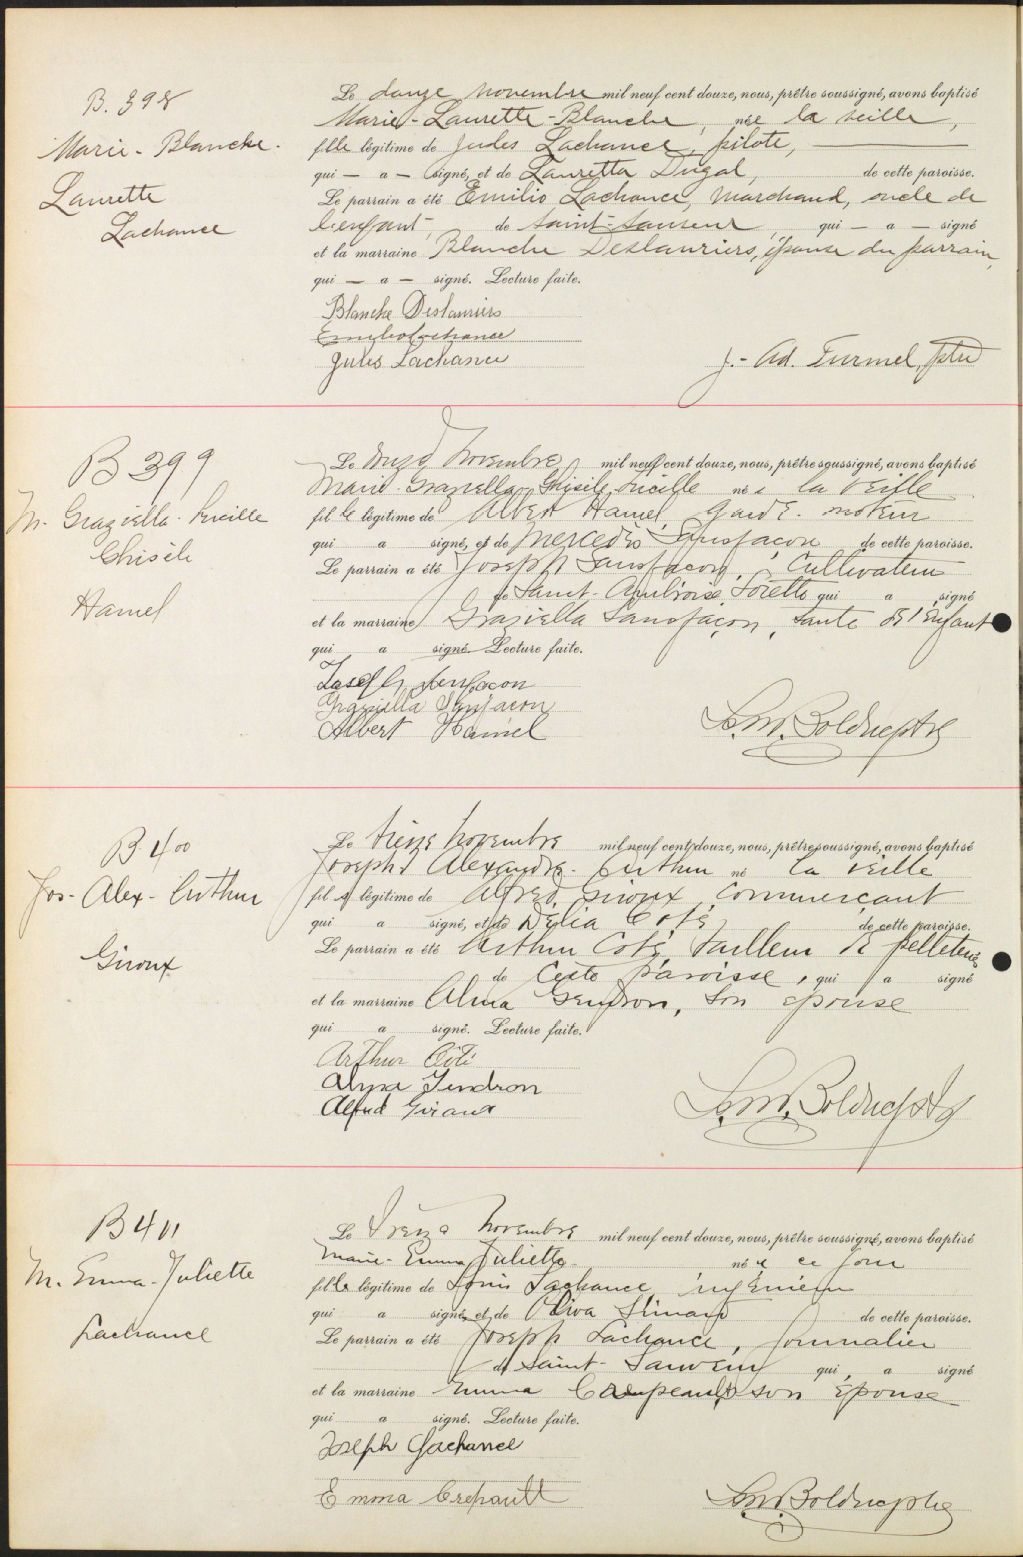 B. 398
Marie-Blanche-
Laurette
Lachance
Le douze novembre mil neuf cent douze, nous, prêtre soussigné, avons baptisé
Marie-Laurette-Blanche, née la veille,
fille légitime de Jules Lachance, pilote,
qui — a — signé, et de Lauretta Dugal, de cette paroisse.
Le parrain a été Emilio Lachance, marchand, oncle de
l'enfant, de Saint-Sauveur, qui — a — signé
et la marraine Blanche Deslauriers, épouse du parrain,
qui — a — signé. Lecture faite.
Blanche Deslauriers
Emilio Lachance
Jules Lachance
J.-Ad. Turmel, ptre
B 399
M. Graziella-Lucille
Ghisèle
Hamel
Le douze Novembre mil neuf cent douze, nous, prêtre soussigné, avons baptisé
Marie-Graziella-Ghisèle-Lucille née la veille
fille légitime de Albert Hamel, garde-moteur
qui a signé, et de Mercédès Sansfaçon de cette paroisse.
Le parrain a été Joseph Sansfaçon, Cultivateur
de Saint-Ambroise Lorette qui a signé
et la marraine Graziella Sansfaçon, tante de l'Enfant
qui a signé. Lecture faite.
Joseph Sansfacon
Graziella Sansfacon
Albert Hamel
Bolduc ptre
B 400
Jos-Alex-Arthur
Giroux
Le treize Novembre mil neuf cent douze, nous, prêtre soussigné, avons baptisé
Joseph Alexandre-Arthur né la veille
fils légitime de Alfred Giroux, Commerçant
qui a signé, et de Délia Coté de cette paroisse.
Le parrain a été Arthur Coté, tailleur de pelleteries
de Cette paroisse, qui a signé
et la marraine Alma Gendron, son épouse
qui a signé. Lecture faite.
Arthur Côté
Alma Gendron
Alfred Giroux
Bolduc ptre
B 411
M. Emma-Juliette
Lachance
Le Treize Novembre mil neuf cent douze, nous, prêtre soussigné, avons baptisé
Marie-Emma Juliette née ce jour
fille légitime de Louis Lachance, ingénieur
qui a signé, et de Oliva Simard de cette paroisse.
Le parrain a été Joseph Lachance, journalier
de Saint-Sauveur qui a signé
et la marraine Emma son Epouse
qui a signé. Lecture faite.
Joseph Lachance
Emma Crepault
Bolduc ptre